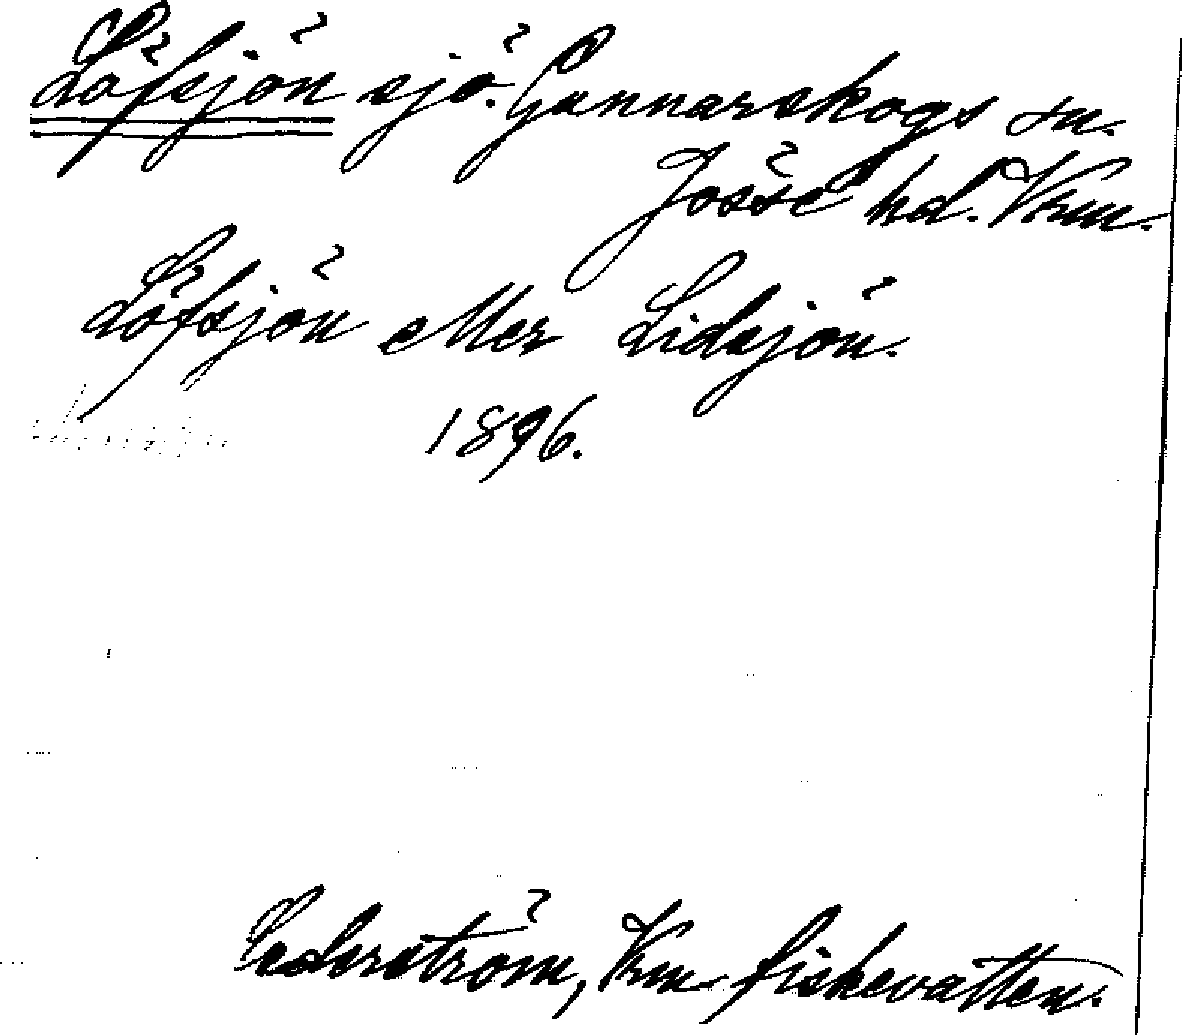 Löfsjön sjö. Gunnarskogs sn.
Jösse hd. Vrm.
Löfsjön eller Lidsjön.
1896.
Cederström, Vrm. fiskevatten.